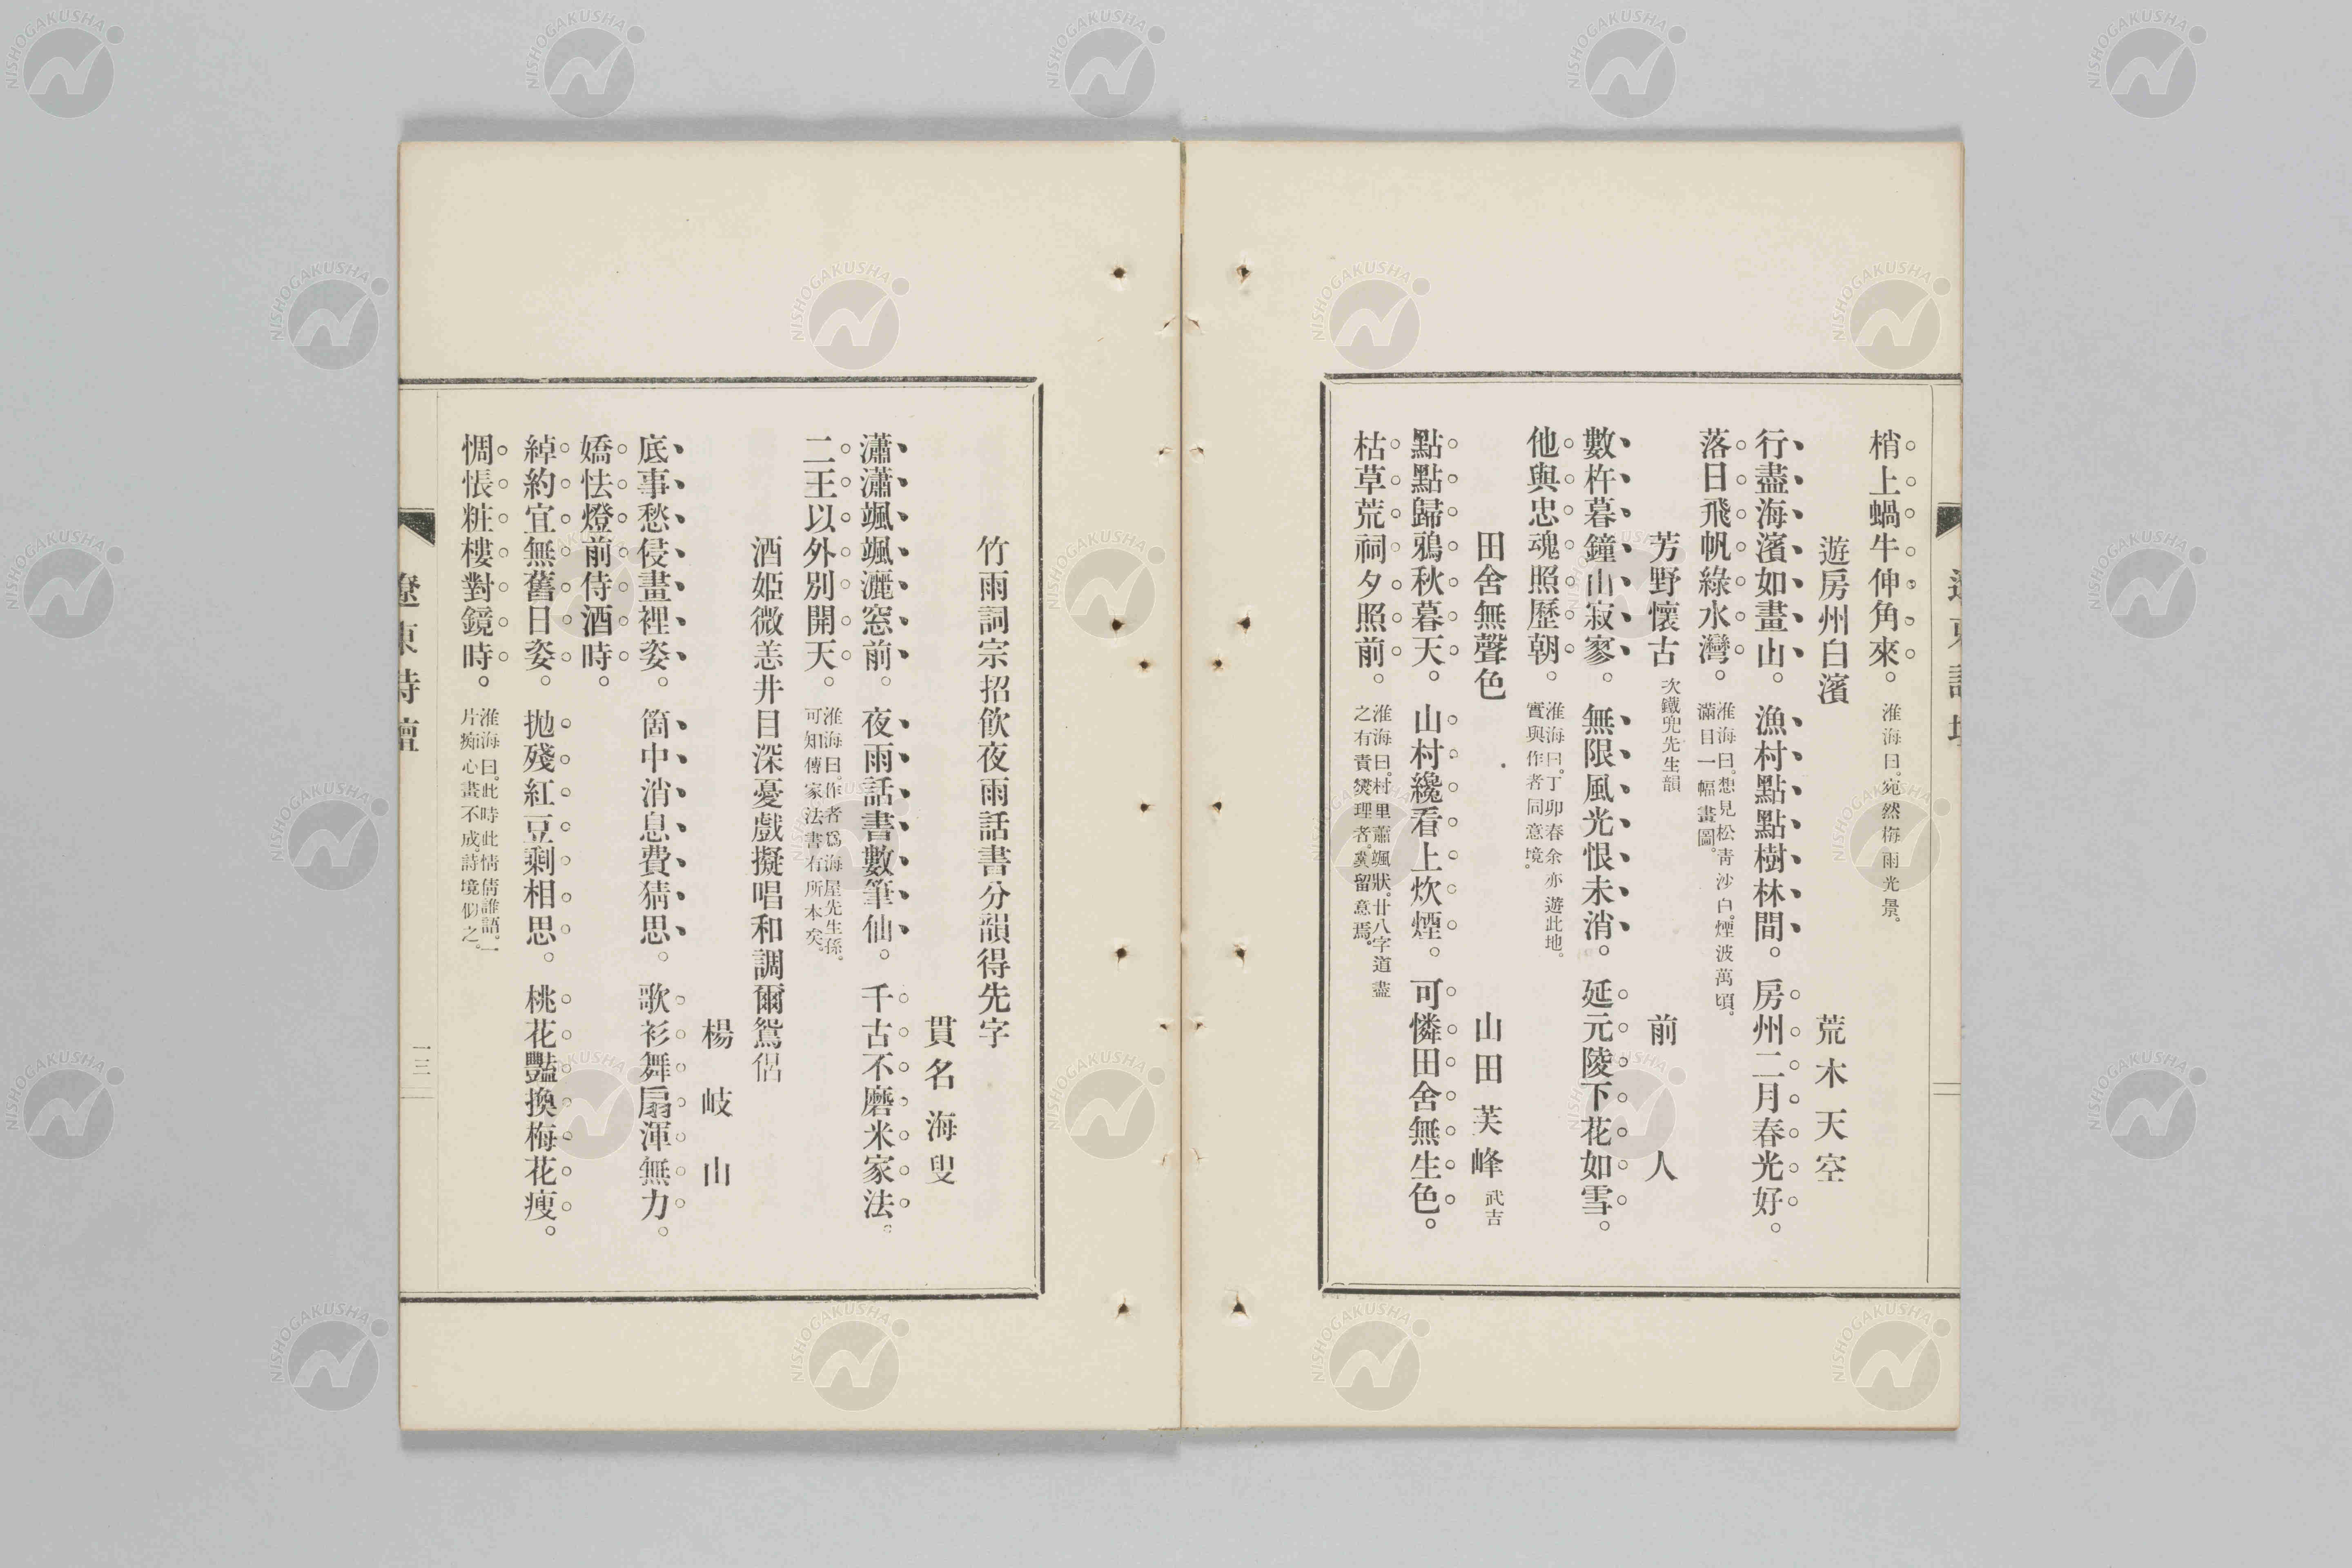 梢上蝸牛伸角來。淮海曰。宛然梅雨光景。
遊房州白濱
荒木天空
行盡海濱如畫山。漁村點點樹林間。房州二月春光好。
落日飛帆綠水灣。淮海曰。想見松青沙白。煙波萬頃。
滿目一幅畫圖。
芳野懷古 次鐵兜先生韻
前人
數杵暮鐘山寂寥。無限風光恨未消。延元陵下花如雪。
他與忠魂照歷朝。淮海曰。丁卯春余亦遊此地。
實與作者同意境。
田舍無聲色
山田芙峰 武吉
點點歸鴉秋暮天。山村纔看上炊煙。可憐田舍無生色。
枯草荒祠夕照前。淮海曰。村里蕭颯狀。廿八字道盡
之有責燮理者。冀留意焉。
竹雨詞宗招飲夜雨話書分韻得先字
貫名海叟
瀟瀟颯颯灑窓前。夜雨話書數筆仙。千古不磨米家法。
二王以外別開天。淮海曰。作者爲海屋先生孫。
可知傳家法書有所本矣。
酒姫微恙井目深憂戲擬唱和調爾鴛侶
楊岐山
底事愁侵畫裡姿。箇中消息費猜思。歌衫舞扇渾無力。
嬌怯燈前侍酒時。
綽約宜無舊日姿。拋殘紅豆剩相思。桃花豔換梅花瘦。
惆悵粧樓對鏡時。淮海曰。此時此情倩誰語。一
片痴心畫不成。詩境似之。
遼東詩壇
一三
NISHOGAKUSHA